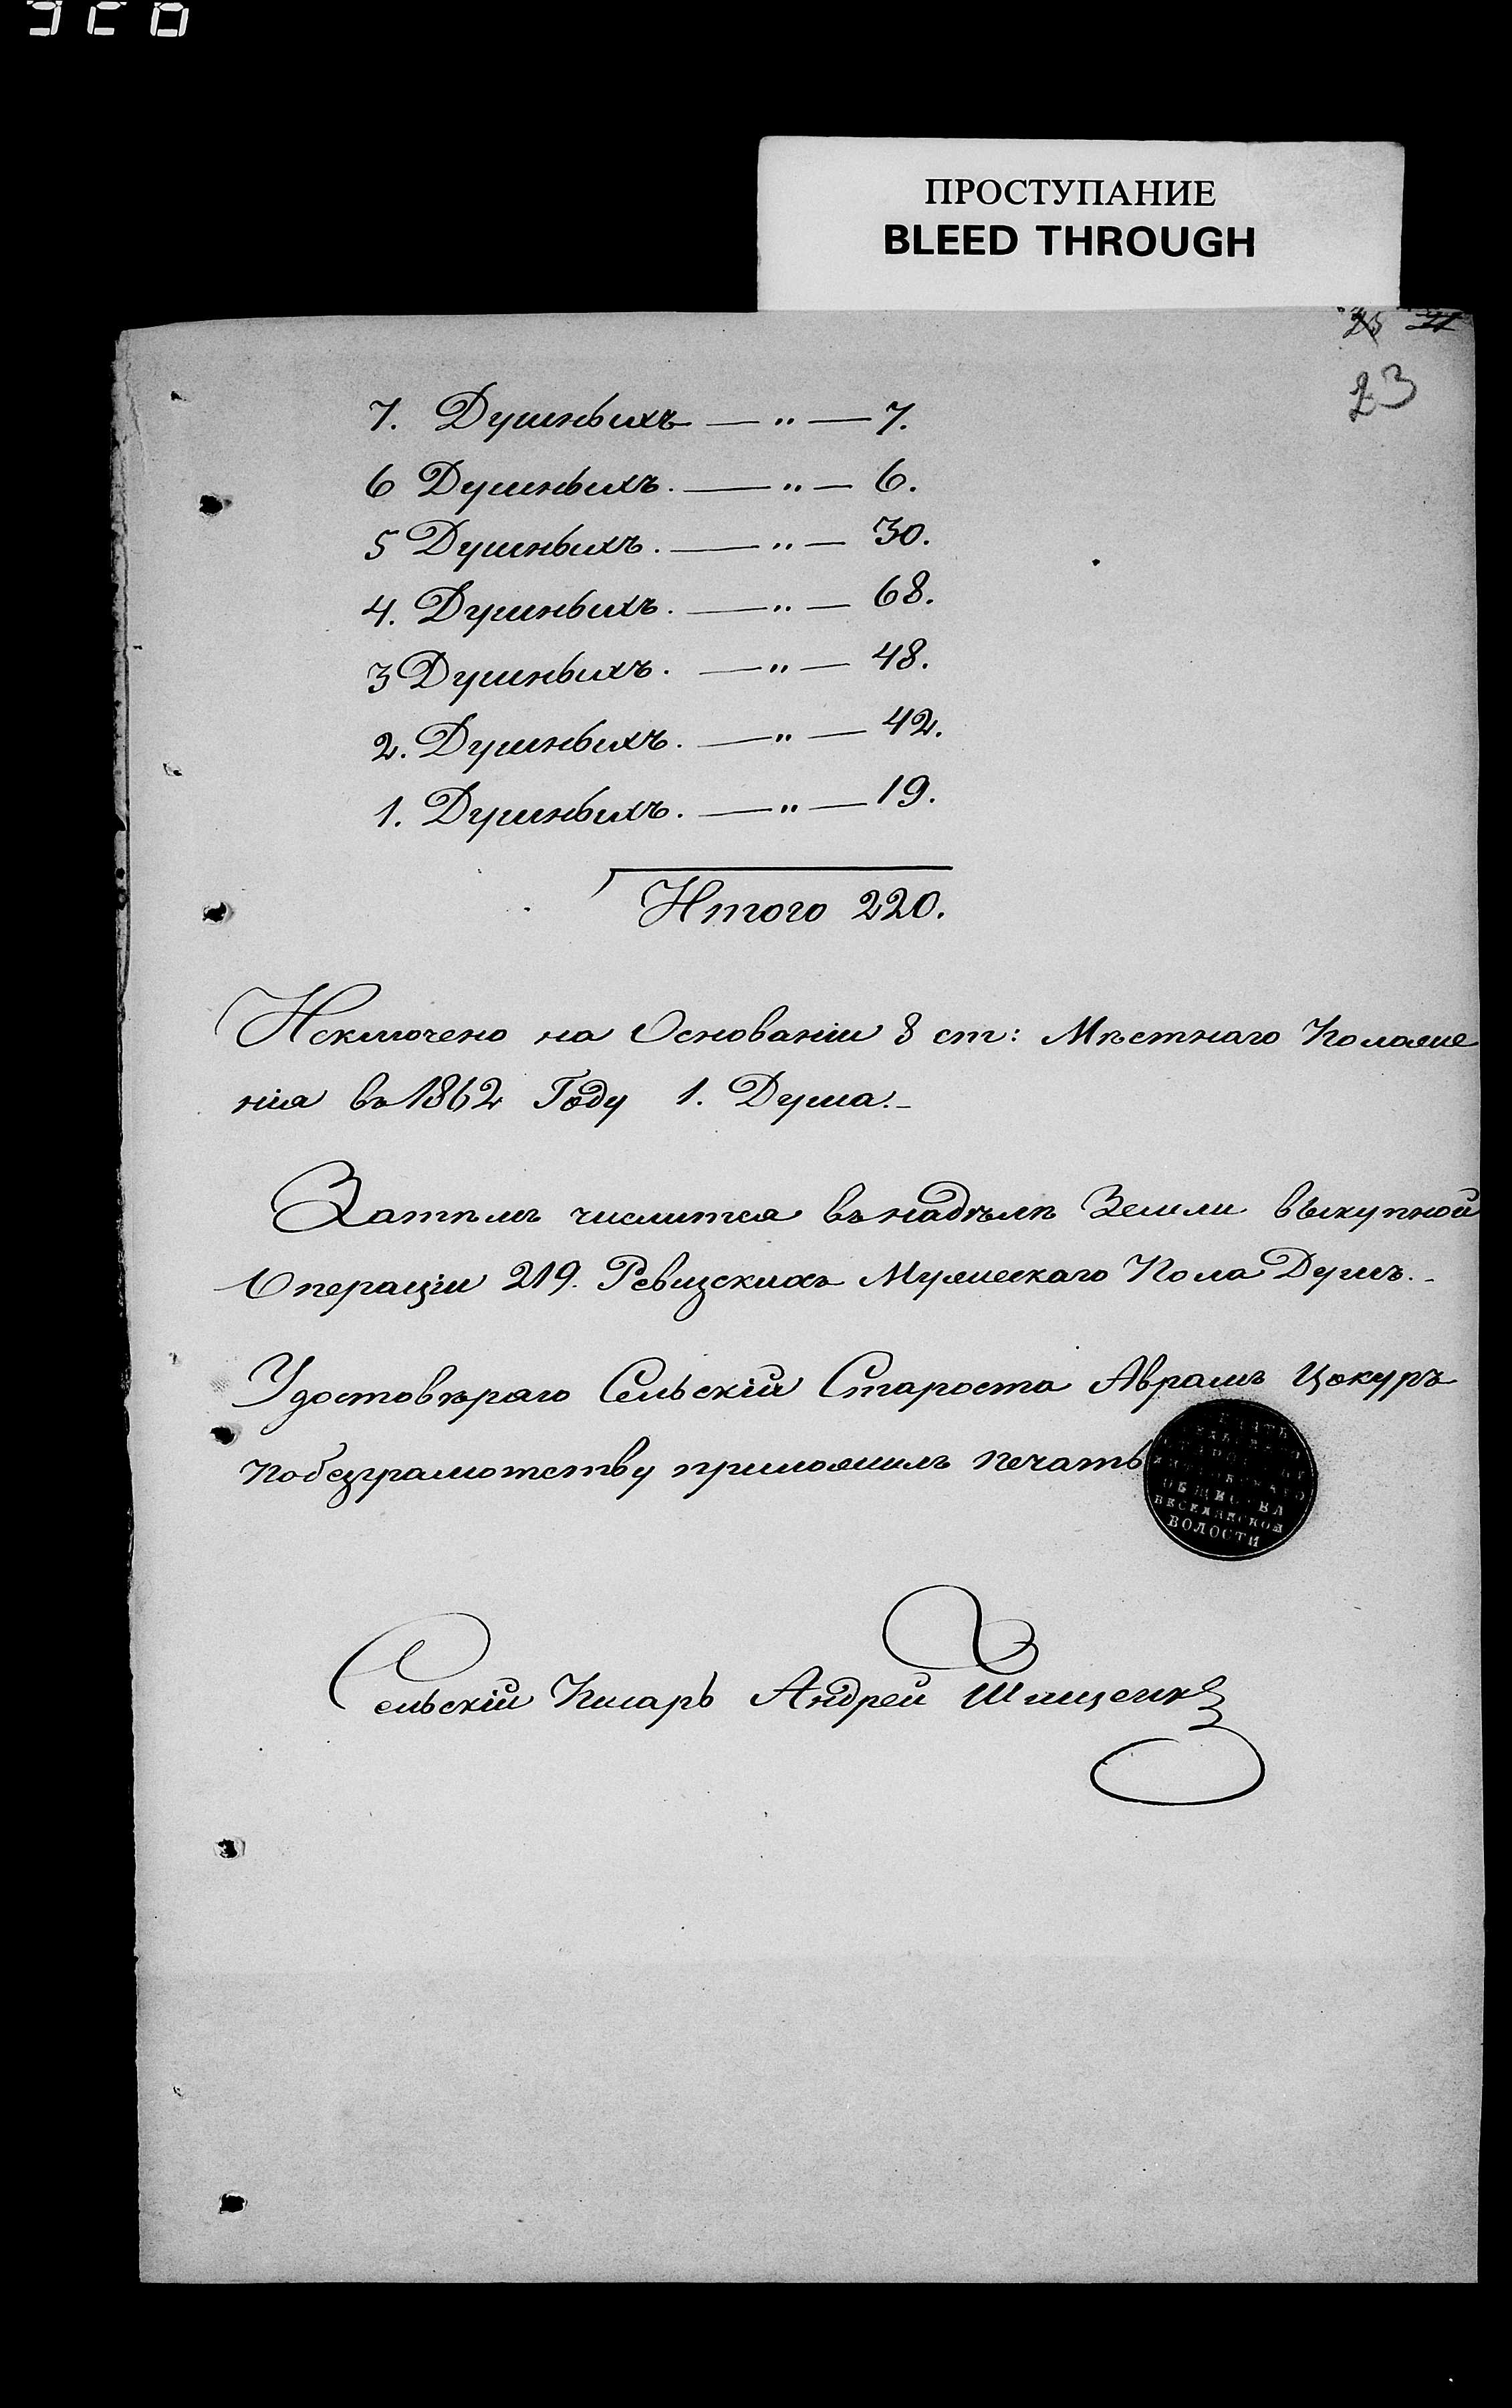 ПРОСТУПАНИЕ
BLEED THROUGH
23
7. Душныхъ — " — 7.
6 Душныхъ. — " — 6.
5 Душныхъ. — " — 30.
4. Душныхъ. — " — 68.
3 Душныхъ. — " — 48.
2. Душныхъ. — " — 42.
1. Душныхъ. — " — 19.
Итого 220.
Исключено на Основаніи 8 ст: Мѣстнаго Положе
нія въ 1862 Году 1. Душа.-
Затѣмъ числится въ надѣлѣ Земли выкупной
Операціи 219. Ревизскихъ Мужескаго Пола Душъ.-
Удостовѣряю Сельскій Староста Аврамъ Цокуръ
по безграмотству приложилъ печать
ОБЩЕСТВА
ВОЛОСТИ
Сельскій Писарь Андрей